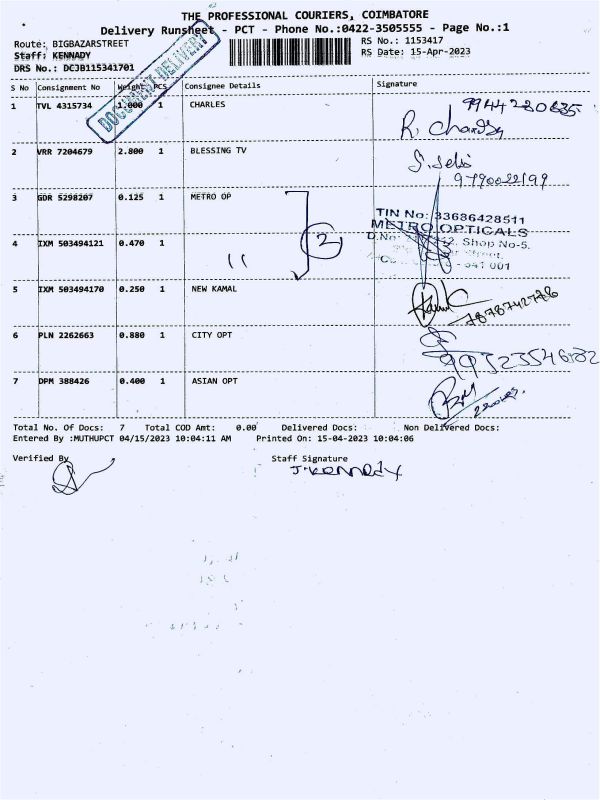 THE PROFESSIONAL COURIERS, COIMBATORE
Delivery Runsheet - PCT - Phone No.:0422-3505555 - Page No.:1
Route: BIGBAZARSTREET
Staff: KENNADY
DRS No.: DCJB115341701
RS No.: 1153417
RS Date: 15-Apr-2023
DOCUMENT DELIVERY
S No Consignment No Weight PCS Consignee Details Signature
1 TVL 4315734 1.000 1 CHARLES 9944280635
R.
2 VRR 7204679 2.800 1 BLESSING TV
S. Selvi
9790022199
3 GDR 5298207 0.125 1 METRO OP
2
TIN No: 33686428511
METRO OPTICALS
Shop No-5,
Street,
- 641 001
4 IXM 503494121 0.470 1
"
5 IXM 503494170 0.250 1 NEW KAMAL
7878742786
6 PLN 2262663 0.880 1 CITY OPT
7 DPM 388426 0.400 1 ASIAN OPT
Total No. Of Docs: 7 Total COD Amt: 0.00 Delivered Docs: Non Delivered Docs:
Entered By :MUTHUPCT 04/15/2023 10:04:11 AM Printed On: 15-04-2023 10:04:06
Verified By
Staff Signature
J. KENNADY